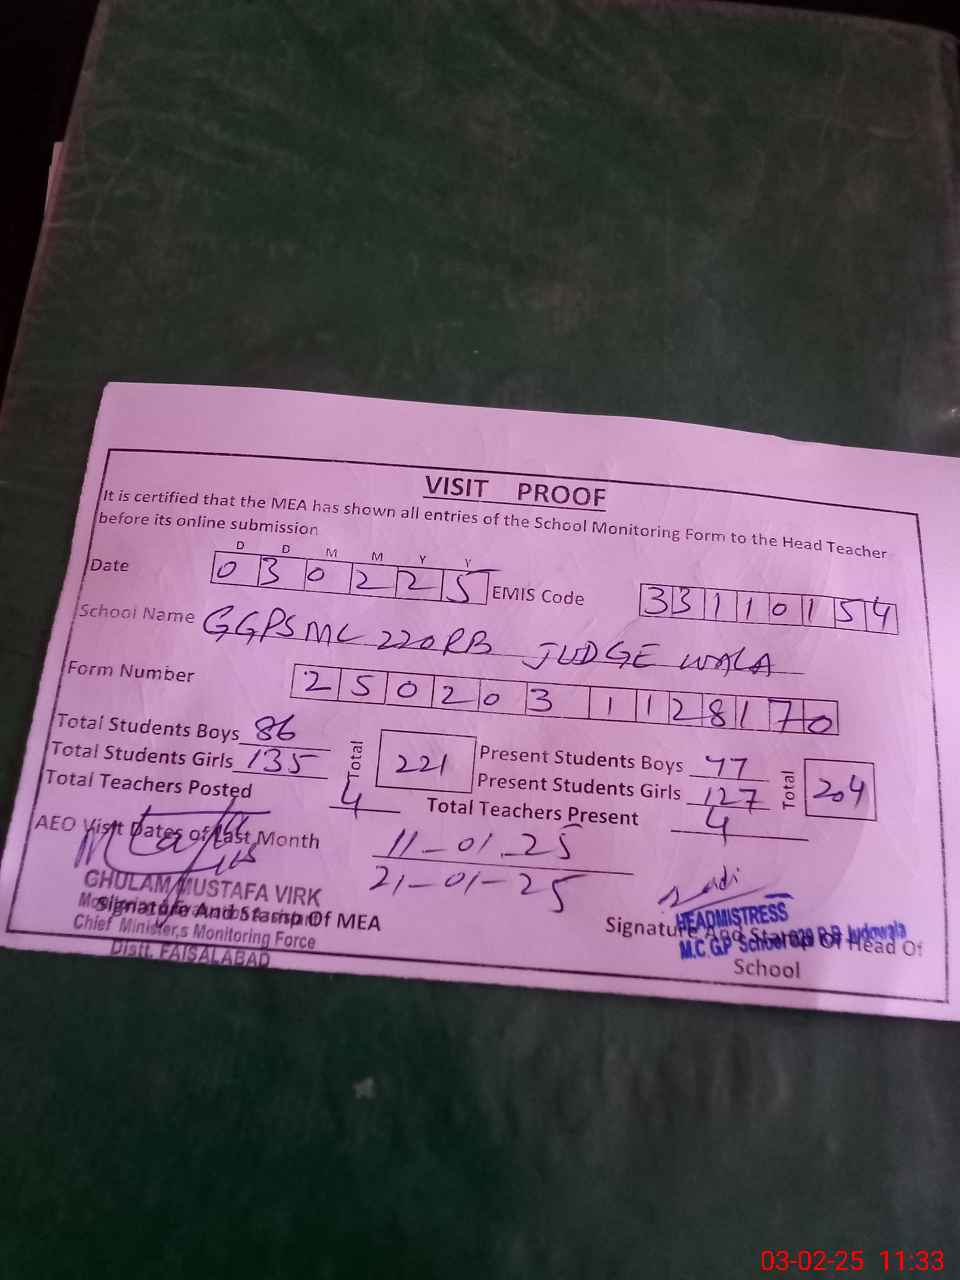 VISIT PROOF
It is certified that the MEA has shown all entries of the School Monitoring Form to the Head Teacher
before its online submission
D D M M Y Y
Date 0 3 0 2 2 5 EMIS Code 3 3 1 1 0 1 5 4
School Name GGPS MC 220RB JUDGE WALA
Form Number 2 5 0 2 0 3 1 1 2 8 1 7 0
Total Students Boys 86 Total 221 Present Students Boys 77 Total 204
Total Students Girls 135 Present Students Girls 127
Total Teachers Posted 4 Total Teachers Present 4
AEO Visit Dates of Last Month 11-01-25
21-01-25
GHULAM MUSTAFA VIRK
Signature And Stamp Of MEA
Chief Minister,s Monitoring Force
Distt. FAISALABAD
HEADMISTRESS
Signature And Stamp Of Head Of
M.C.G.P School R.B Judowala
School
03-02-25 11:33